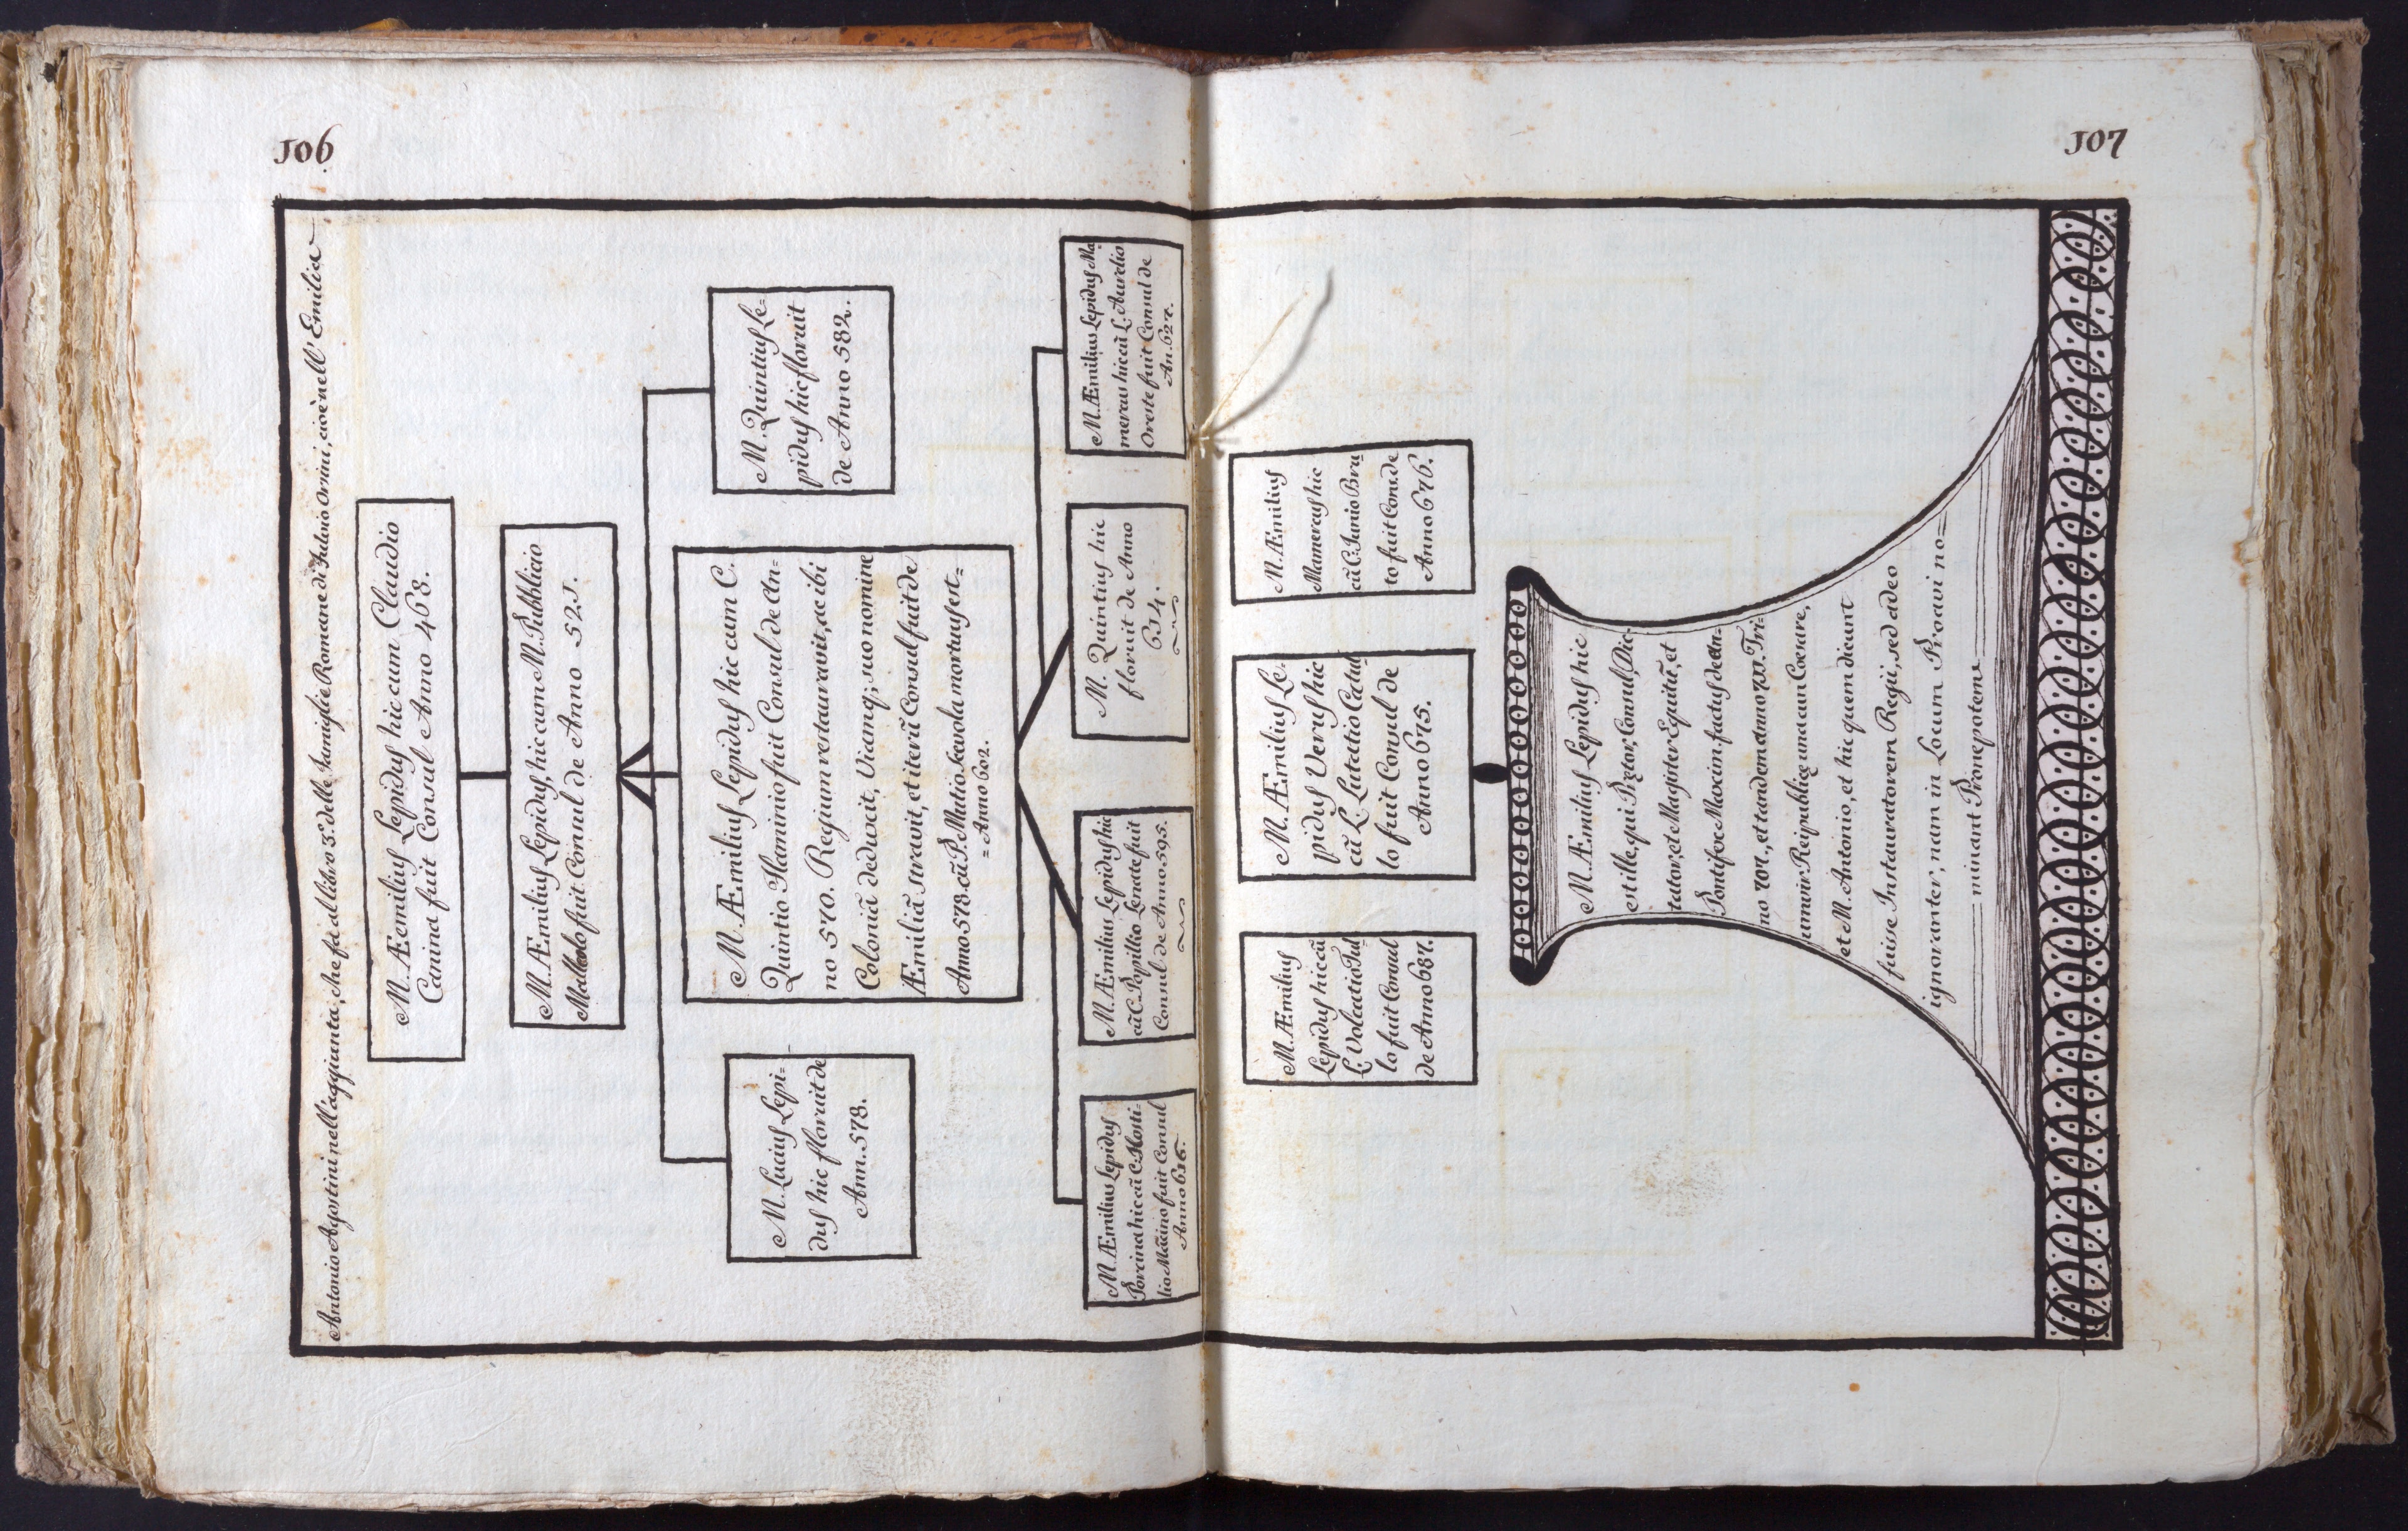 106
107
Antonio Agostini nell'aggiunta, che fa al libro 5. delle Famiglie Romane di Fulvio Orsini, cioè nell'Emilia
M. Æemilius Lepidus hic cum Claudio
Canina fuit Consul Anno 468.
M. Æmilius Lepidus, hic cum M. Pubblicio
Malleolo fuit Consul de Anno 521.
M. Lucius Lepi-
dus hic floruit de
Ann. 578.
M. Æmilius Lepidus hic cum C.
Quintio Flaminio fuit Consul de An-
no 570. Regium restauravit, ac ibi
Coloniā deduxit, Viamq; suo nomine
Æmiliā stravit, et iterū Consul fuit de
Anno 578. cū P. Mutio Scevola mortuus est=
= Anno 602.
M. Quintius Le-
pidus hic floruit
de Anno 582.
M. Æmilius Lepidus
Porcina hic cū C. Hosti-
lio Mācino fuit Consul
Anno 616.
M. Æmilius Lepidus hic
cū C. Popillio Lenate fuit
Consul de Anno 595.
M. Quintius hic
floruit de Anno
634.
M. Æmilius Lepidus Ma
mercus hic cū L. Aurelio
Oreste fuit Consul de
An. 627.
M. Æmilius
Lepidus hic cū
L. Volcatio Tul
lo fuit Consul
de Anno 687.
M. Æmilius Le.
pidus Verus hic
cū L. Lutatio Catul
lo fuit Consul de
Anno 675.
M. Æmilius
Mamercus hic
cū C. Junio Bru
to fuit Con. de
Anno 676.
M. Æmilius Lepidus hic
est ille, qui Prętor, Consul, Dic-
tator, et Magister Equitū, et
Pontifex Maxim. factus de An-
no 707., et tandem Anno 711. Tri-
umvir Reipublicę una cum Coesare,
et M. Antonio, et hic quem dicunt
fuisse Instauratorem Regii, sed adeo
ignoranter, nam in Locum Proavi no=
== minant Pronepotem